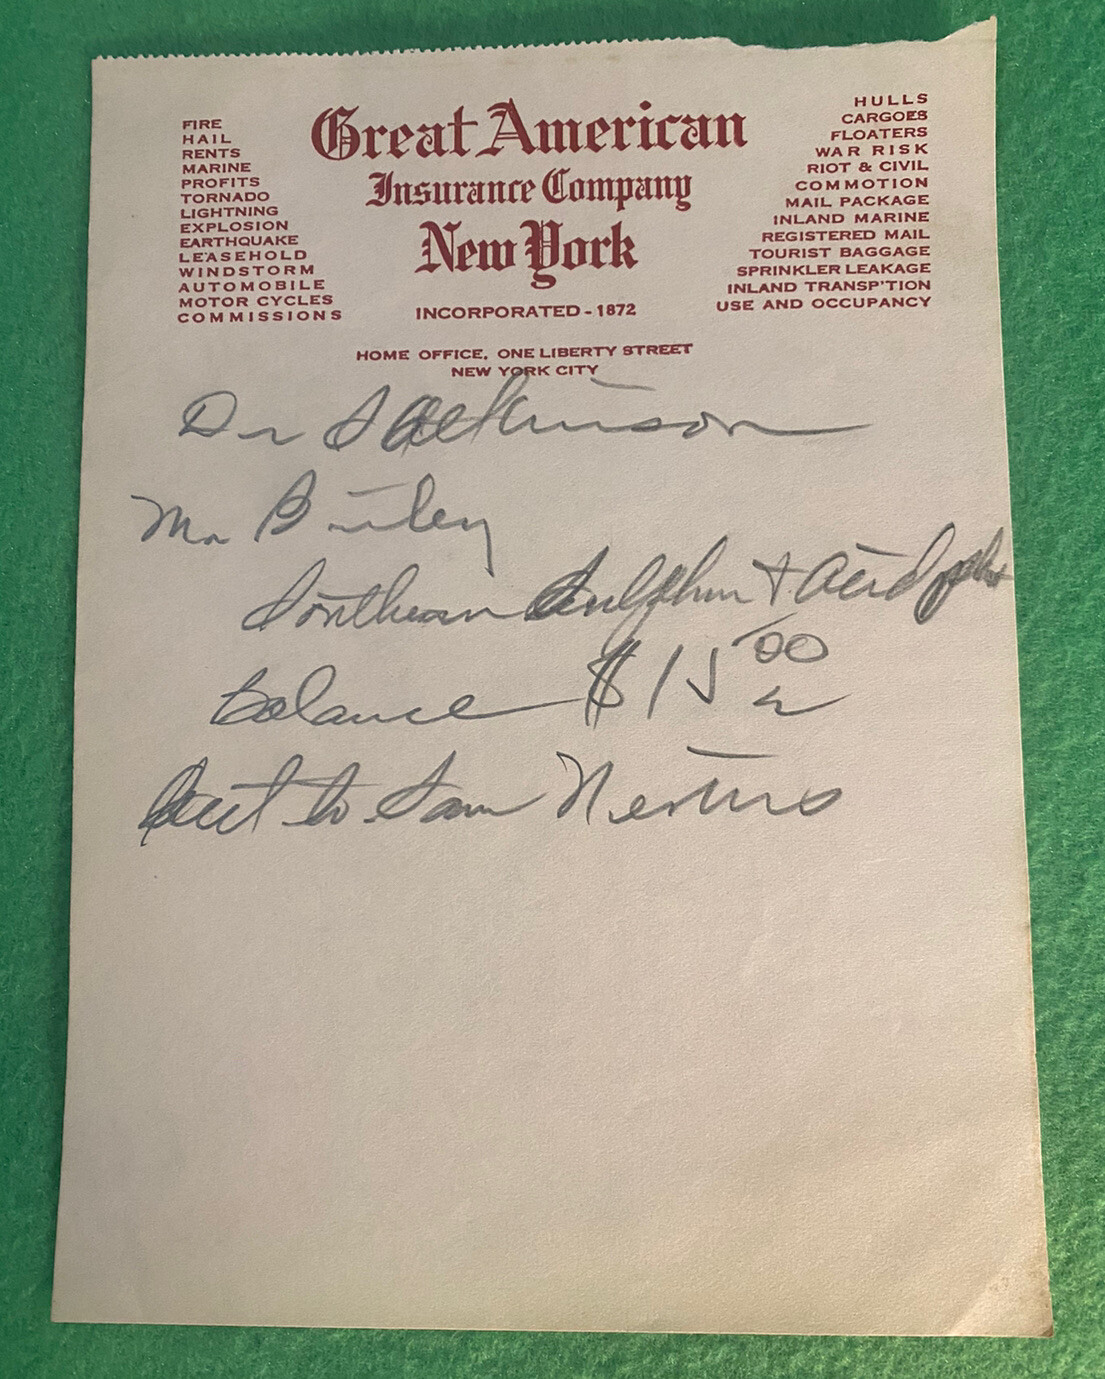 FIRE
HAIL
RENTS
MARINE
PROFITS
TORNADO
LIGHTNING
EXPLOSION
EARTHQUAKE
LEASEHOLD
WINDSTORM
AUTOMOBILE
MOTOR CYCLES
COMMISSIONS
Great American
Insurance Company
New York
INCORPORATED - 1872
HOME OFFICE, ONE LIBERTY STREET
NEW YORK CITY
HULLS
CARGOES
FLOATERS
WAR RISK
RIOT & CIVIL
COMMOTION
MAIL PACKAGE
INLAND MARINE
REGISTERED MAIL
TOURIST BAGGAGE
SPRINKLER LEAKAGE
INLAND TRANSP'TION
USE AND OCCUPANCY
Dr
Mr
Southern Sulphur + Acid
Balance $15 00
to Sam